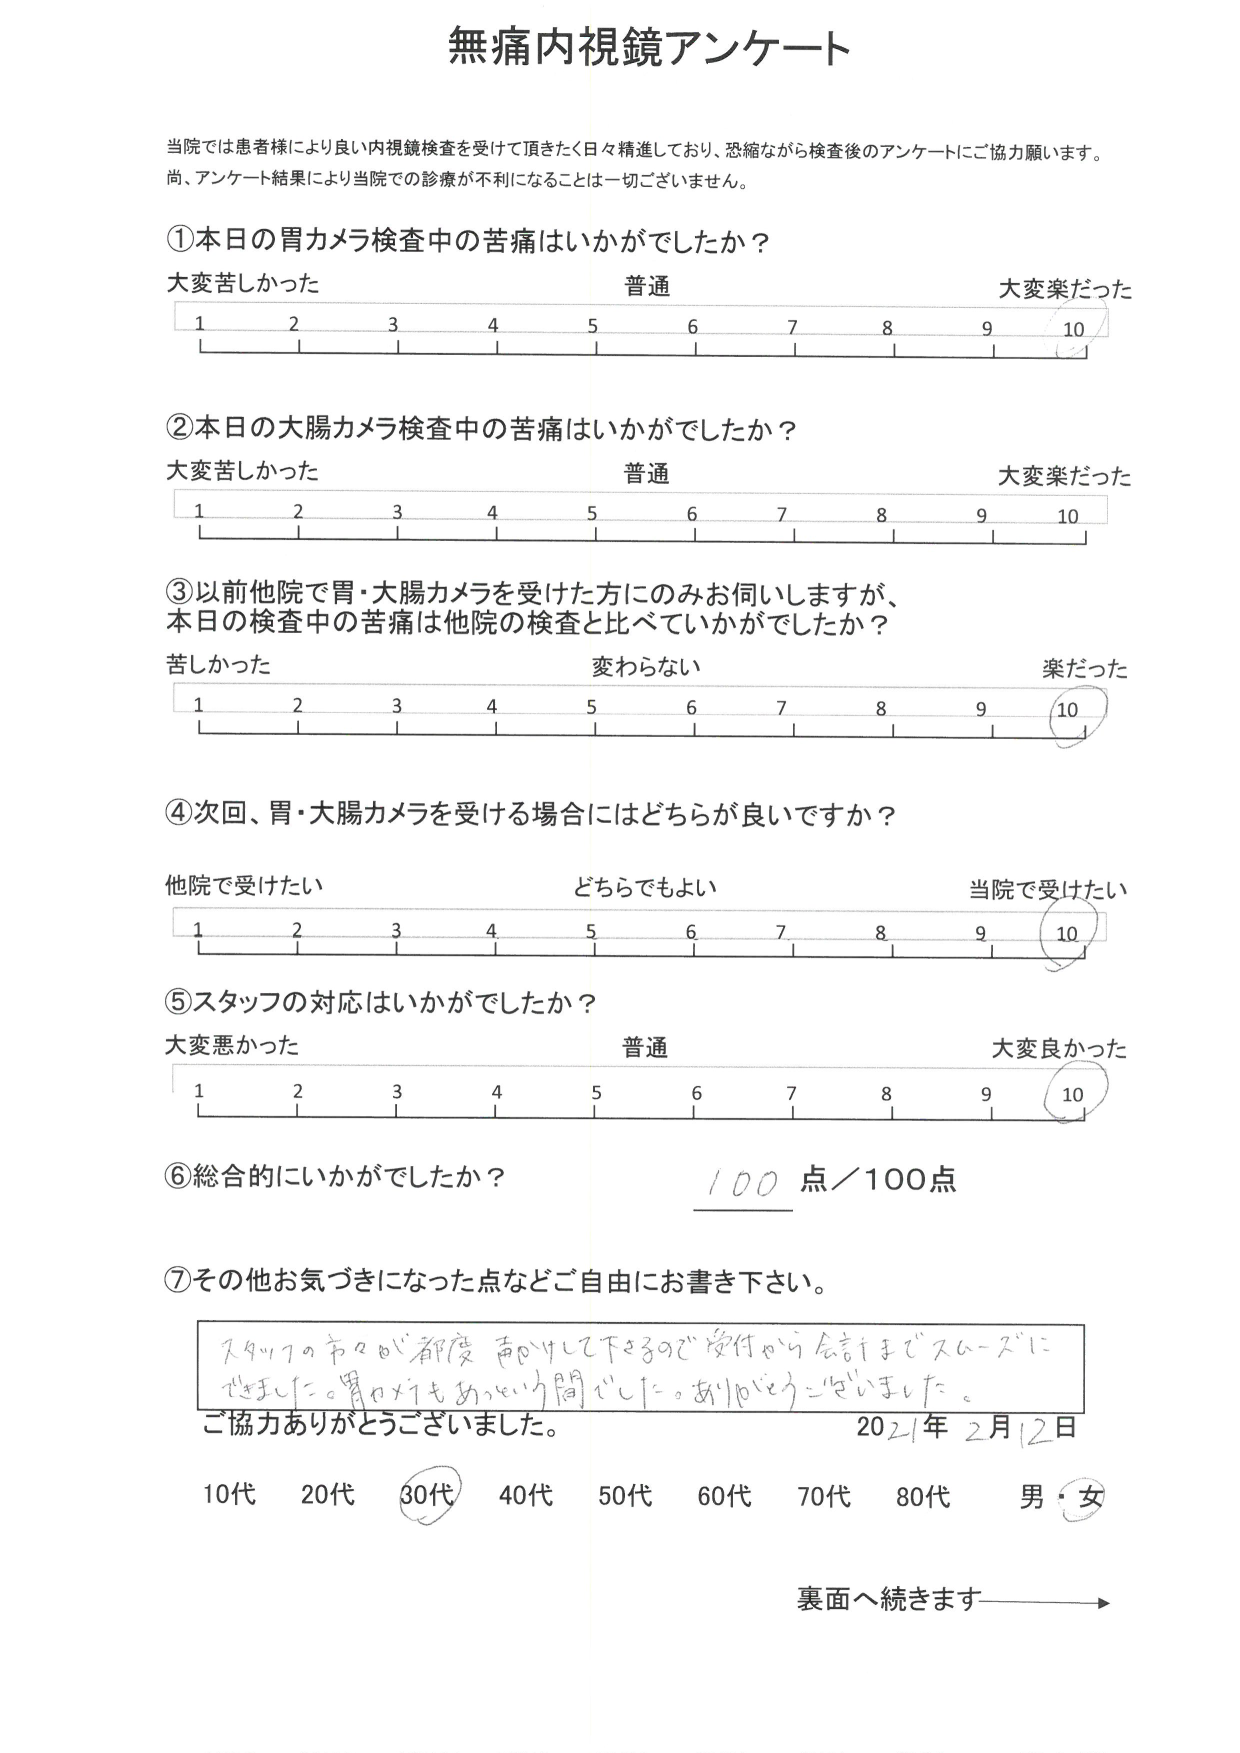 無痛内視鏡アンケート
当院では患者様により良い内視鏡検査を受けて頂きたく日々精進しており、恐縮ながら検査後のアンケートにご協力願います。
尚、アンケート結果により当院での診療が不利になることは一切ございません。
①本日の胃カメラ検査中の苦痛はいかがでしたか？
大変苦しかった 普通 大変楽だった
1 2 3 4 5 6 7 8 9 10
②本日の大腸カメラ検査中の苦痛はいかがでしたか？
大変苦しかった 普通 大変楽だった
1 2 3 4 5 6 7 8 9 10
③以前他院で胃・大腸カメラを受けた方にのみお伺いしますが、
本日の検査中の苦痛は他院の検査と比べていかがでしたか？
苦しかった 変わらない 楽だった
1 2 3 4 5 6 7 8 9 10
④次回、胃・大腸カメラを受ける場合にはどちらが良いですか？
他院で受けたい どちらでもよい 当院で受けたい
1 2 3 4 5 6 7 8 9 10
⑤スタッフの対応はいかがでしたか？
大変悪かった 普通 大変良かった
1 2 3 4 5 6 7 8 9 10
⑥総合的にいかがでしたか？ 100 点／100点
⑦その他お気づきになった点などご自由にお書き下さい。
スタッフの方々が都度 声かけして下さるので受付から会計までスムーズに
できました。胃カメラもあっという間でした。ありがとうございました。
ご協力ありがとうございました。 2021年 2月12日
10代 20代 30代 40代 50代 60代 70代 80代 男・女
裏面へ続きます